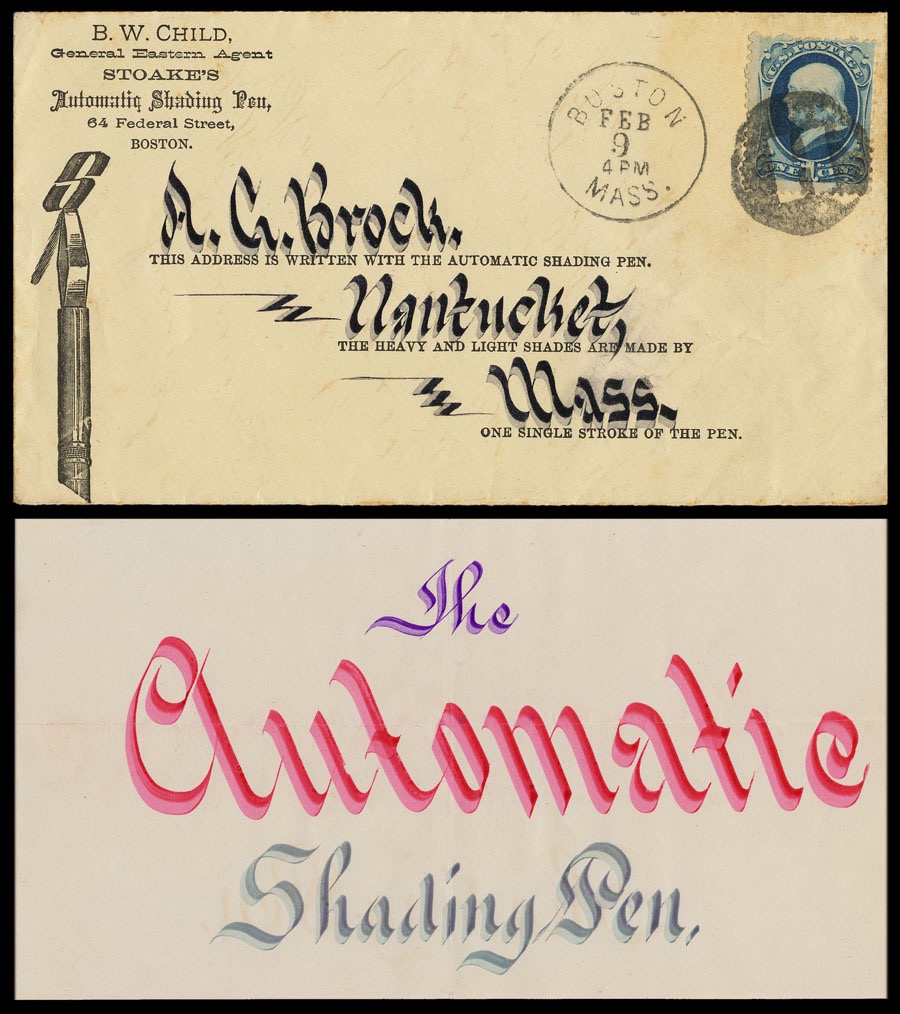 B. W. CHILD,
General Eastern Agent
STOAKE'S
Automatic Shading Pen,
64 Federal Street,
BOSTON.
BOSTON
FEB
9
4 PM
MASS.
U.S. POSTAGE
ONE CENT
S
A. G. Brock.
THIS ADDRESS IS WRITTEN WITH THE AUTOMATIC SHADING PEN.
Nantucket,
THE HEAVY AND LIGHT SHADES ARE MADE BY
Mass.
ONE SINGLE STROKE OF THE PEN.
The
Automatic
Shading Pen.